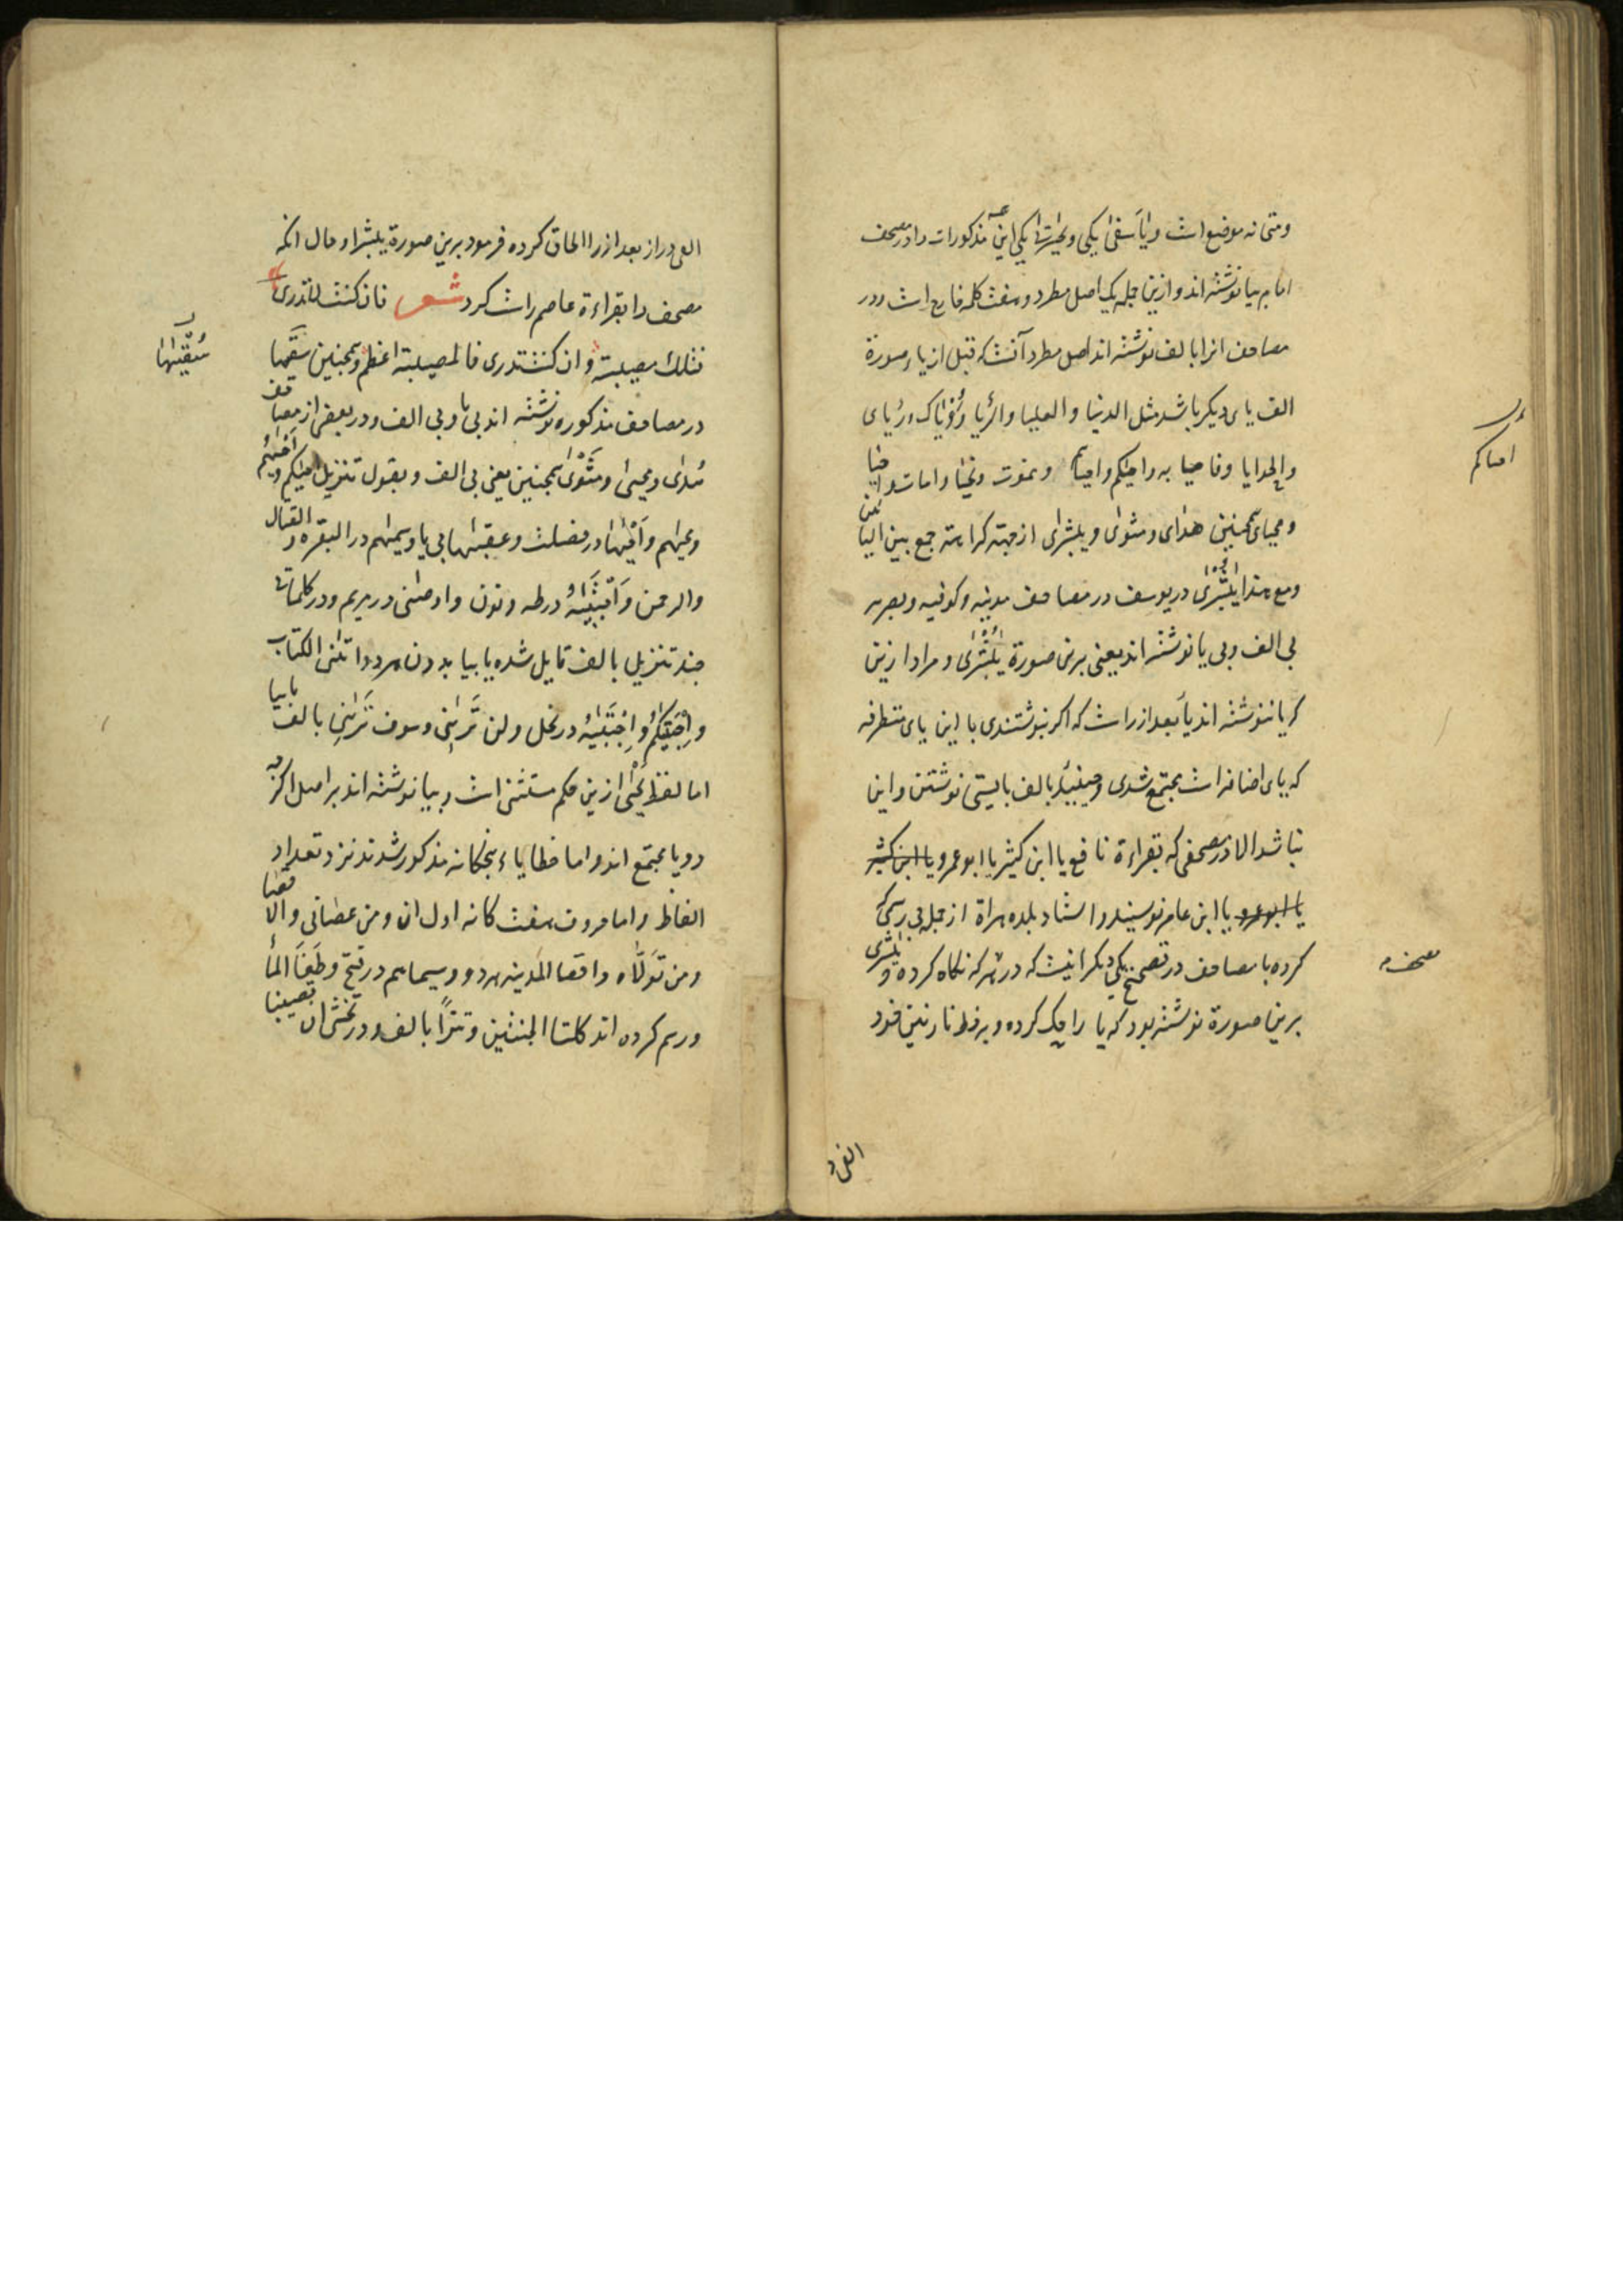 ومتی نه موضع است ویأسفی یکی ویحسرتی یکی این مذکورات را در مصحف
امام بیا نوشته اند وازین جمله یک اصل مطرد وهفت کلمه خارج است ودر
مصاحف انرا بالف نوشته اند اصل مطرد آنست که قبل از یاء صورة
الف یای دیکر باشد مثل الدنیا والعلیا والرؤیا ورؤیاک ورؤیای
والحوایا وفاحیا به واحیاکم واحیاها ونموت ونحیا وامات واحیا
ومحیای همچنین هدای ومثوای ویبشرای از جهة کراهة جمع بین الیائین
ومع هذا یبشرای در یوسف در مصاحف مدنیه وکوفیه وبصریه
بی الف وبی یا نوشته اند یعنی برین صورة یبشری ومراد ازین
که یا ننوشته اند یا بعد از راست که اکر نبوشتندی با این یای متطرفه
که یای اضافه است مجتمع شدی وحینئذ بالف بایستی نوشتن واین
نباشد الا در مصحفی که بقراءة نافع یا ابن کثیر یا ابو عمرو یا ابن کثیر
یا ابو عمرو یا ابن عامر نویسند واستاد بلده هراة از جمله بی رسمی که
کرده با مصاحف در تصحیح یکی دیکر اینست که در هر که نکاه کرده ویبشری
برین صورة نوشته بود که یا را حک کرده وبه خط نازنین خود
احیاکم
مصحف
الفی د
الفی دراز بعد از را الحاق کرده فرمود برین صورة یبشرا وحال انکه
مصحف را بقراءة عاصم راست کرد شعر فان کنت لا تدری
فتلک مصیبة وان کنت تدری فالمصیبة اعظم وهمچنین سقیها
در مصاحف مذکوره نوشته اند بی یا وبی الف ودر بعض از مصاحف
هدای ومحیای ومثوای همچنین یعنی بی الف وبقول تنزیل
در فصلت وعقبیها بی یا وسیمهم در البقره والقتال
والرحمن واجتبیه در طه ونون واوصنی در مریم ودر کلماتی
چند تنزیل بالف قایل شده یا بیا بدون هر دو اتنی الکتاب
واجتبیکم واجتبیه در نحل ولن ترینی وسوف ترینی بالف یا بیا
اما لفظ یحیی ازین حکم مستثنی است وبیا نوشته اند بر اصل اکرچه
دو یا مجتمع اند واما خطایاء پنجکانه مذکور شدند نزد تعداد
الفاظ واما حروف هفت کانه اول ان ومن عصانی والاقصا
ومن تولاه واقصا المدینه هر دو وسیماهم در فتح وطغا الما
ورسم کرده اند کلتا الجنتین وتترا بالف ودر نخشی ان تصیبنا
سقیها